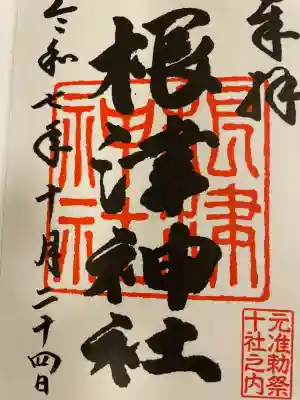 奉拝
根津神社
根津神社
令和七年十月二十四日
元准勅祭
十社之内